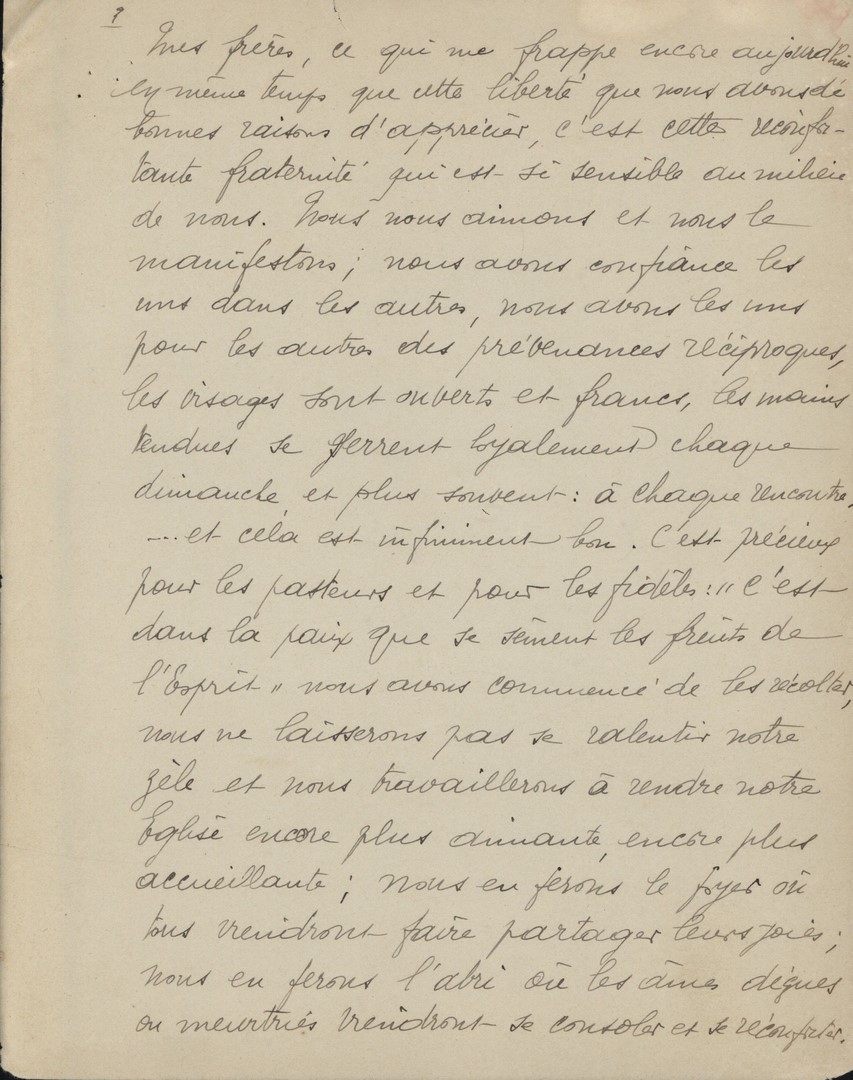 Mes frères, ce qui me frappe encore aujourd'hui
en même temps que cette liberté que nous avons de
bonnes raisons d'apprécier, c'est cette réconfor-
tante fraternité qui est si sensible au milieu
de nous. Nous nous aimons et nous le
manifestons ; nous avons confiance les
uns dans les autres, nous avons les uns
pour les autres des prévenances réciproques,
les visages sont ouverts et francs, les mains
tendues se serrent loyalement chaque
dimanche et plus souvent : à chaque rencontre,
... et cela est infiniment bon. C'est précieux
pour les pasteurs et pour les fidèles : "C'est
dans la paix que se sèment les fruits de
l'Esprit" nous avons commencé de les récolter,
nous ne laisserons pas se ralentir notre
zèle et nous travaillerons à rendre notre
Eglise encore plus aimante, encore plus
accueillante ; nous en ferons le foyer où
tous viendront faire partager leurs joies ;
nous en ferons l'abri où les âmes déçues
ou meurtries viendront se consoler et se réconforter.